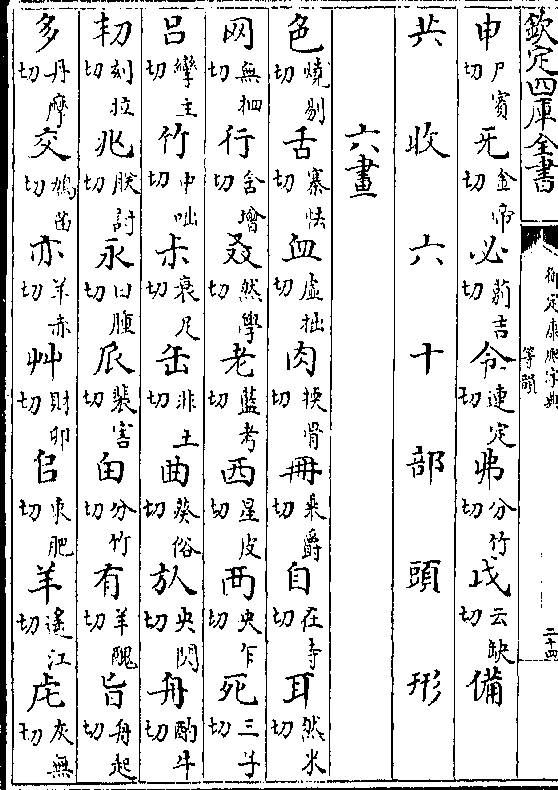 欽定四庫全書
御定康熙字典
等韻
二十四
申尸賓切 死金帝切 必菊吉切 令連定切 弗分竹切 戉云缺切 備
共收六十部頭形
六畫
色燒剔切 舌寨怯切 血虛拙切 肉揆骨切 冊乗爵切 自在寺切 耳然米切
网無罔切 行舍增切 叒然學切 老藍考切 西星皮切 兩央乍切 死三子切
呂孿主切 竹中咄切 尗衰尺切 缶非土切 曲葵俗切 㫃央閃切 舟酌牛切
㓞刻拉切 兆朕討切 永曰腫切 𠂢裴害切 甶分竹切 有羊醜切 旨舟起切
多丹摩切 交鳩苗切 亦羊赤切 艸財卯切 㠯東肥切 羊遙江切 虍灰無切